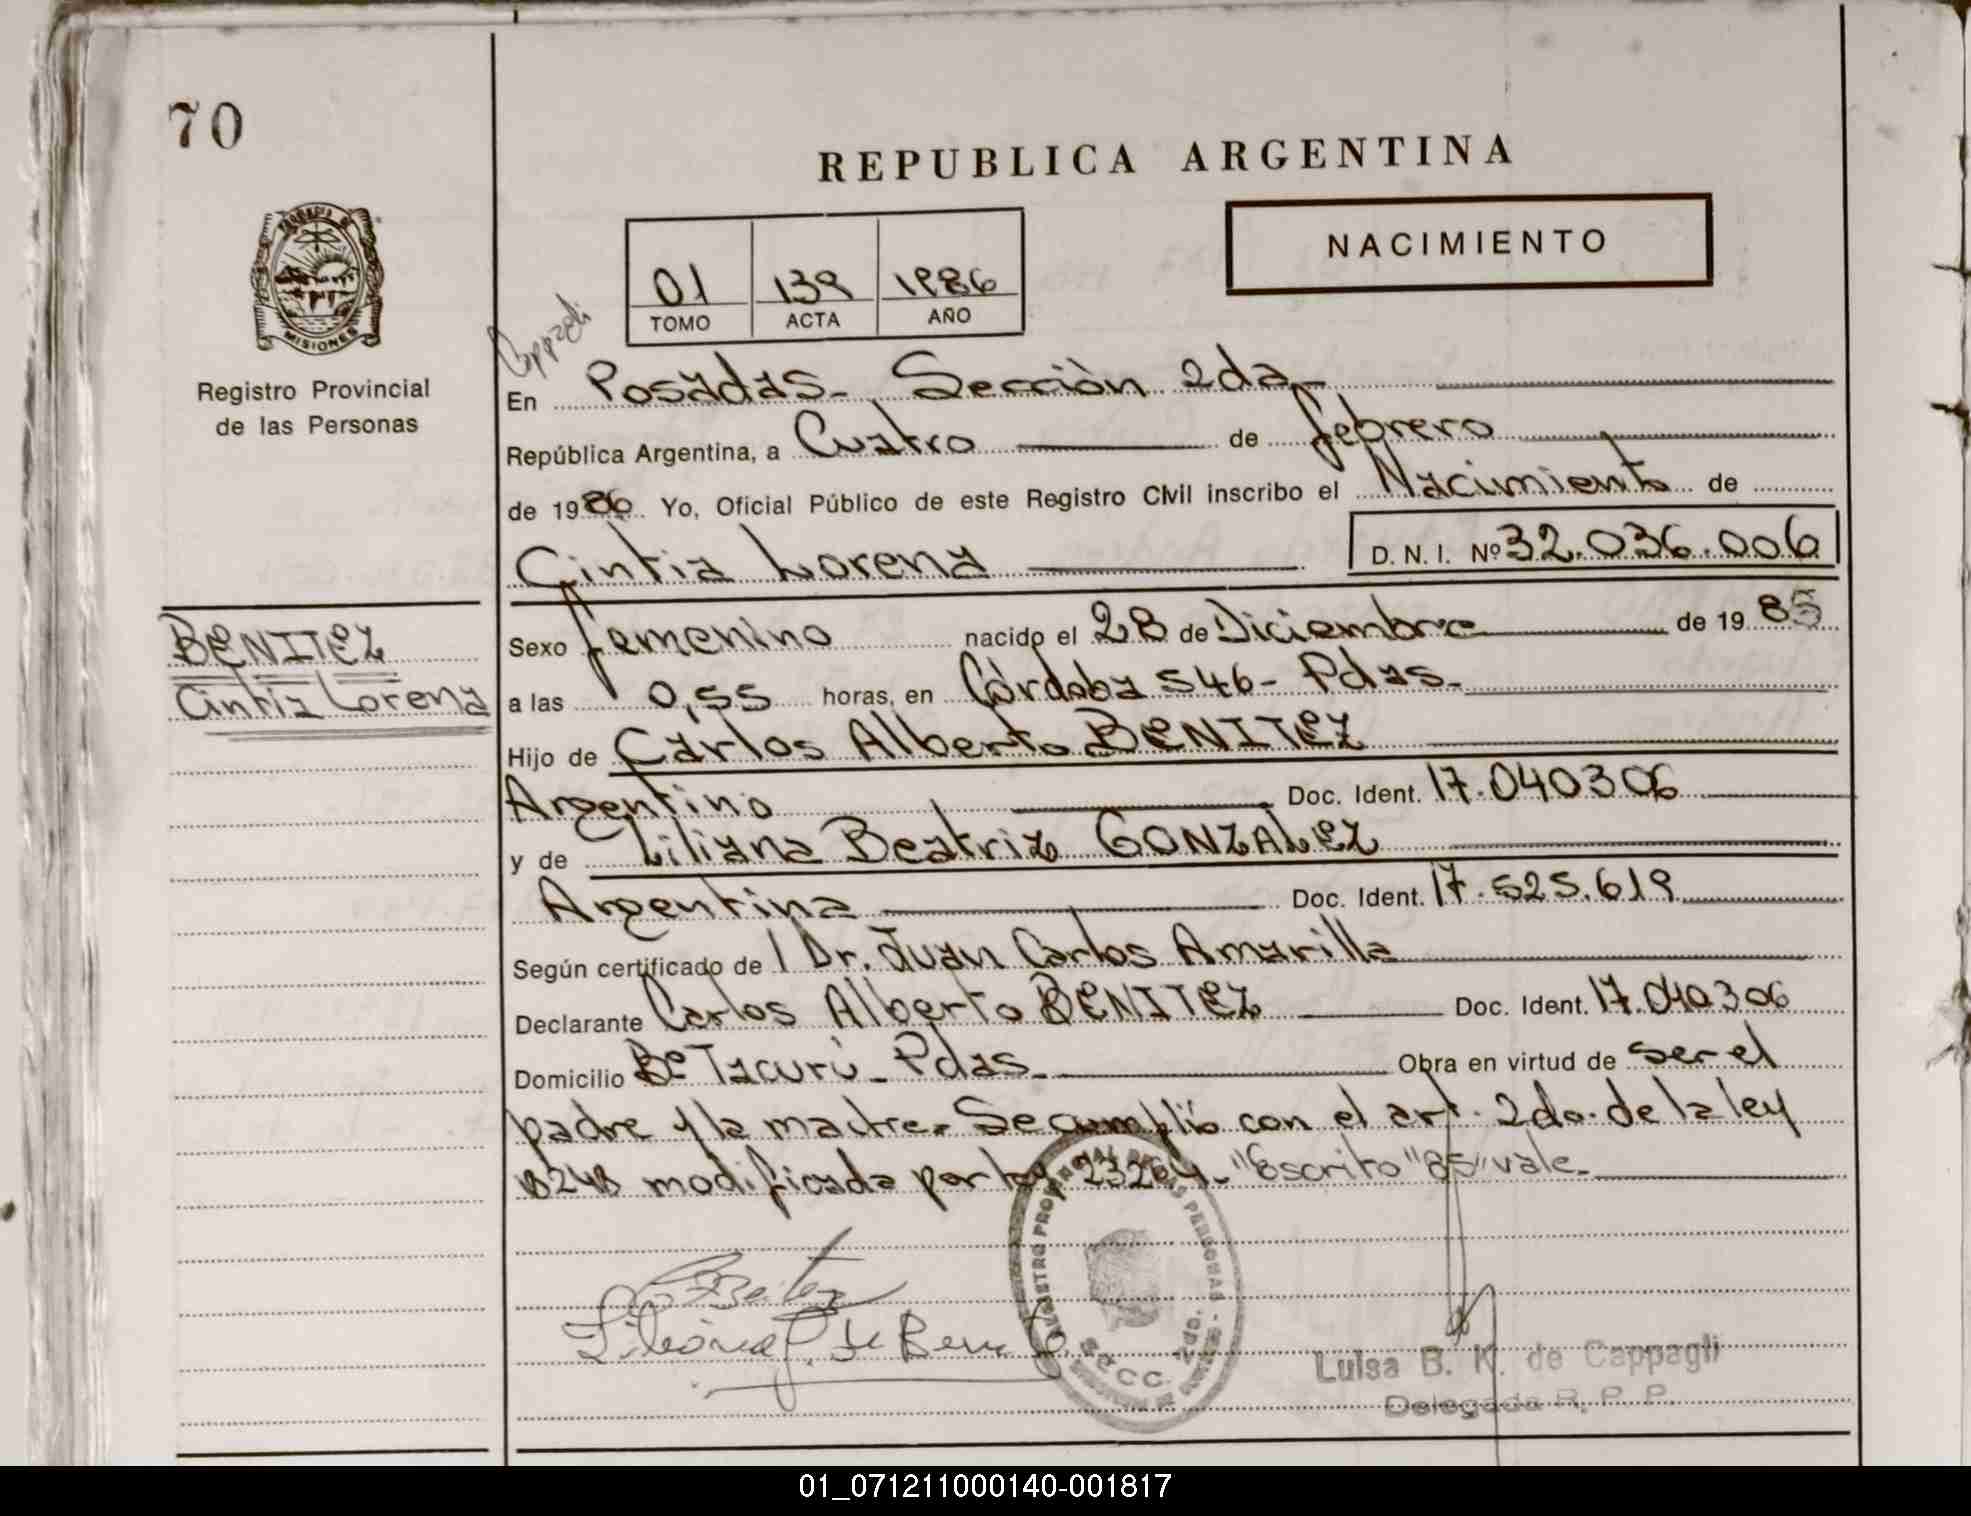 70
REPUBLICA ARGENTINA
NACIMIENTO
01 139 1986
TOMO ACTA AÑO
MISIONES
Registro Provincial
de las Personas
En Posadas - Sección 2da -
República Argentina, a Cuatro de febrero
de 1986 Yo, Oficial Público de este Registro Civil inscribo el Nacimiento de
Cintia Lorena D. N. I. Nº 32.036.006
BENITEZ
Cintia Lorena
Sexo femenino nacido el 28 de Diciembre de 1985
a las 0,55 horas, en Córdoba 546 - Pdas.
Hijo de Carlos Alberto BENITEZ
Argentino Doc. Ident. 17.040306
y de Liliana Beatriz GONZALEZ
Argentina Doc. Ident. 17.525.619
Según certificado de Dr. Juan Carlos Amarilla
Declarante Carlos Alberto BENITEZ Doc. Ident. 17.040306
Domicilio Bº Tacurú - Pdas. Obra en virtud de ser el
padre y la madre. Se cumplió con el art. 2do. de la ley
18248 modificada por ley 23264. "Escrito "85" vale.
SECC. 2da.
Luisa B. K. de Cappagli
Delegada R. P. P.
01_071211000140-001817